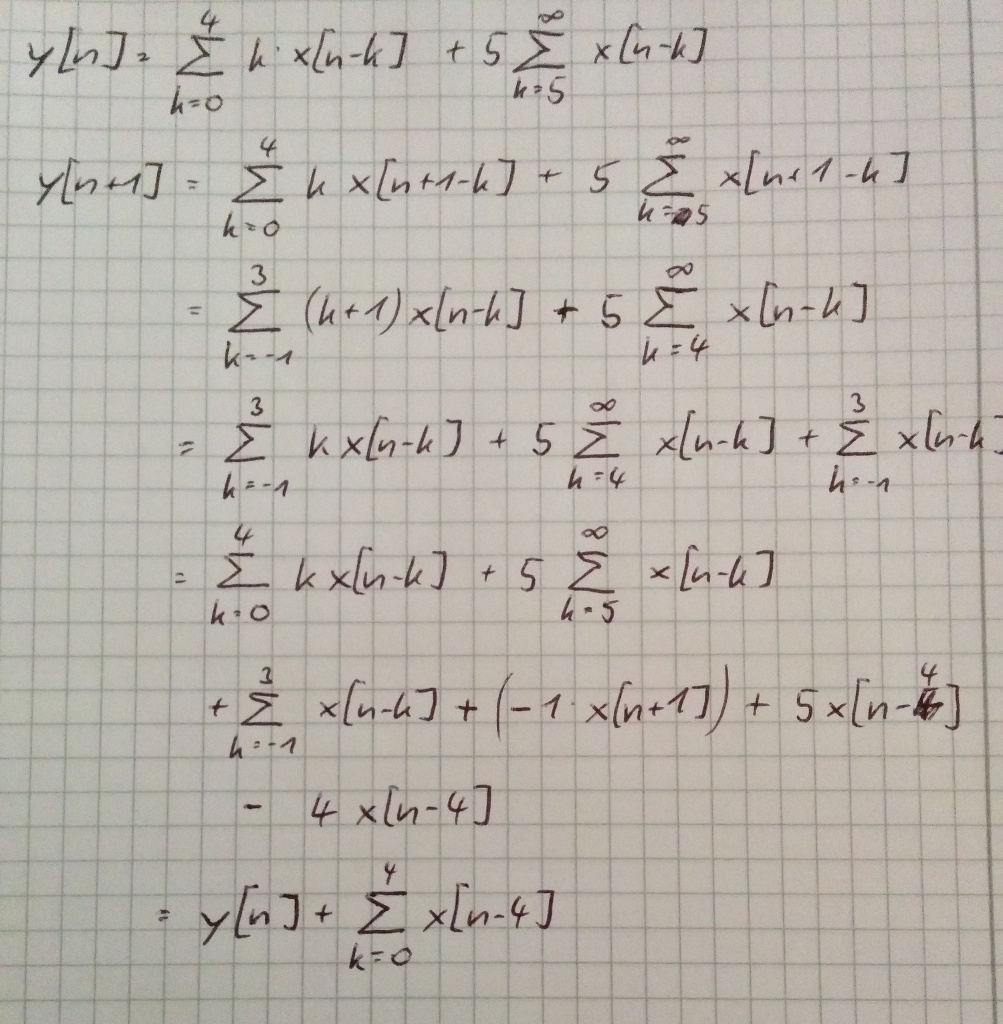 y[n] = ∑_{k=0}^{4} k · x[n-k] + 5 ∑_{k=5}^{∞} x[n-k]
y[n+1] = ∑_{k=0}^{4} k x[n+1-k] + 5 ∑_{k=5}^{∞} x[n+1-k]
= ∑_{k=-1}^{3} (k+1) x[n-k] + 5 ∑_{k=4}^{∞} x[n-k]
= ∑_{k=-1}^{3} k x[n-k] + 5 ∑_{k=4}^{∞} x[n-k] + ∑_{k=-1}^{3} x[n-k]
= ∑_{k=0}^{4} k x[n-k] + 5 ∑_{k=5}^{∞} x[n-k]
+ ∑_{k=-1}^{3} x[n-k] + (-1 · x[n+1]) + 5 x[n-4]
- 4 x[n-4]
= y[n] + ∑_{k=0}^{4} x[n-4]